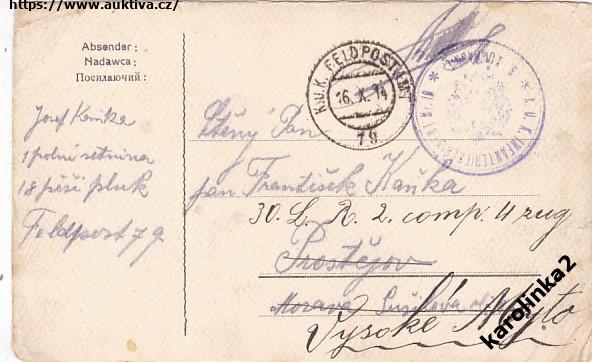 https://www.auktiva.cz/
Absender:
Nadawca:
Посилаючий:
Josef Kaňka
1 polní setnina
18 pěší pluk
Feldpost 79
K.u.K. FELDPOSTAMT
16. X. 14
79
Ctěný Pan
pan František Kaňka
30. L. R. 2. comp. 4 zug
Prostějov
Morava Sušilova
Vysoké Mýto
karolinka2